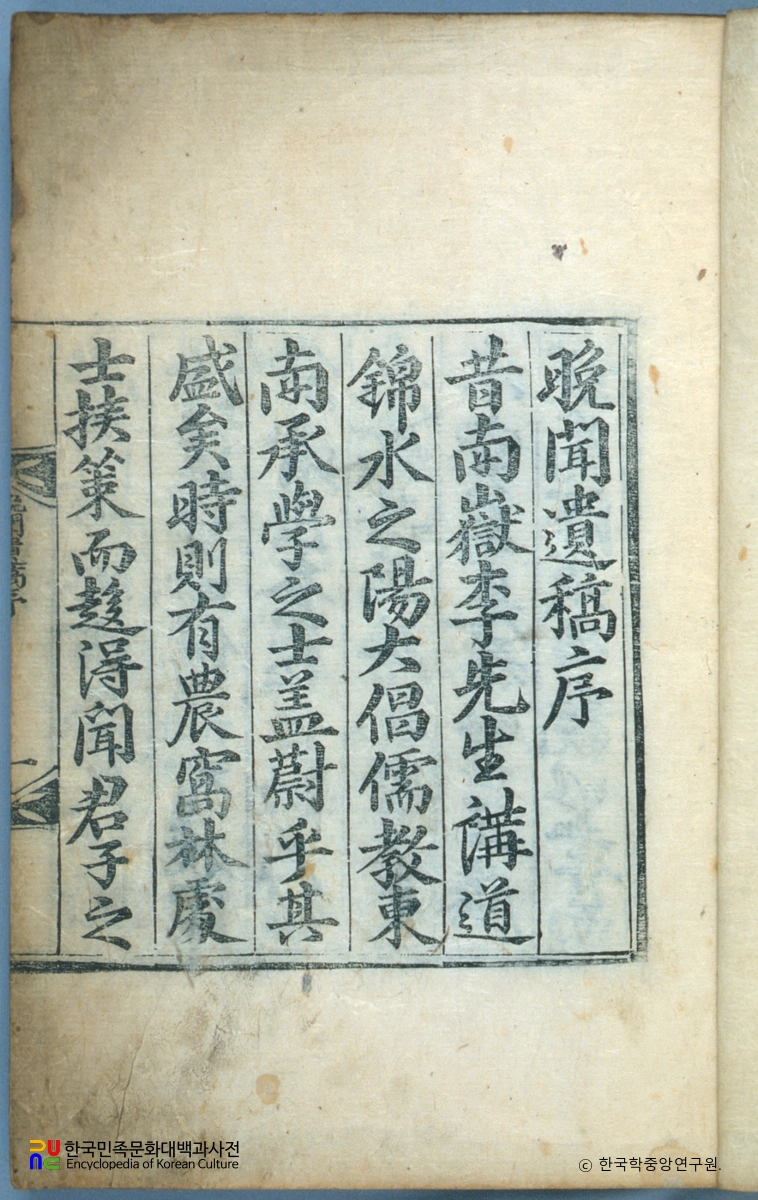 晩聞遺稿序
昔南嶽李先生講道
錦水之陽大倡儒教東
南承學之士盖蔚乎其
盛矣時則有農窩林處
士挾筞而趍得聞君子之
한국민족문화대백과사전
Encyclopedia of Korean Culture
© 한국학중앙연구원.